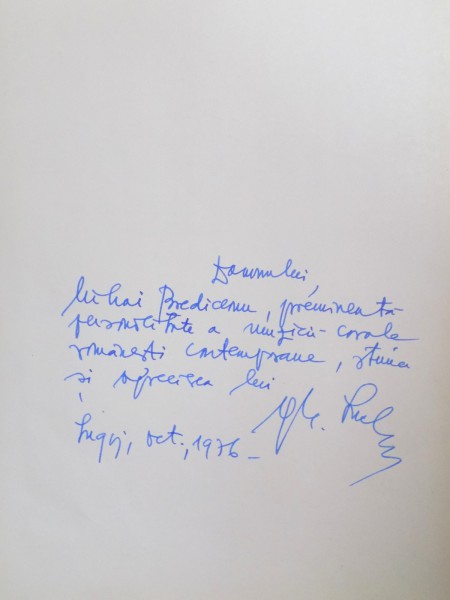 Domnului,
Mihai Brediceanu, preeminentă
personalitate a muzicii corale
românești contemporane, stima
și aprecierea lui
Gh.
Lugoj, oct., 1976 –